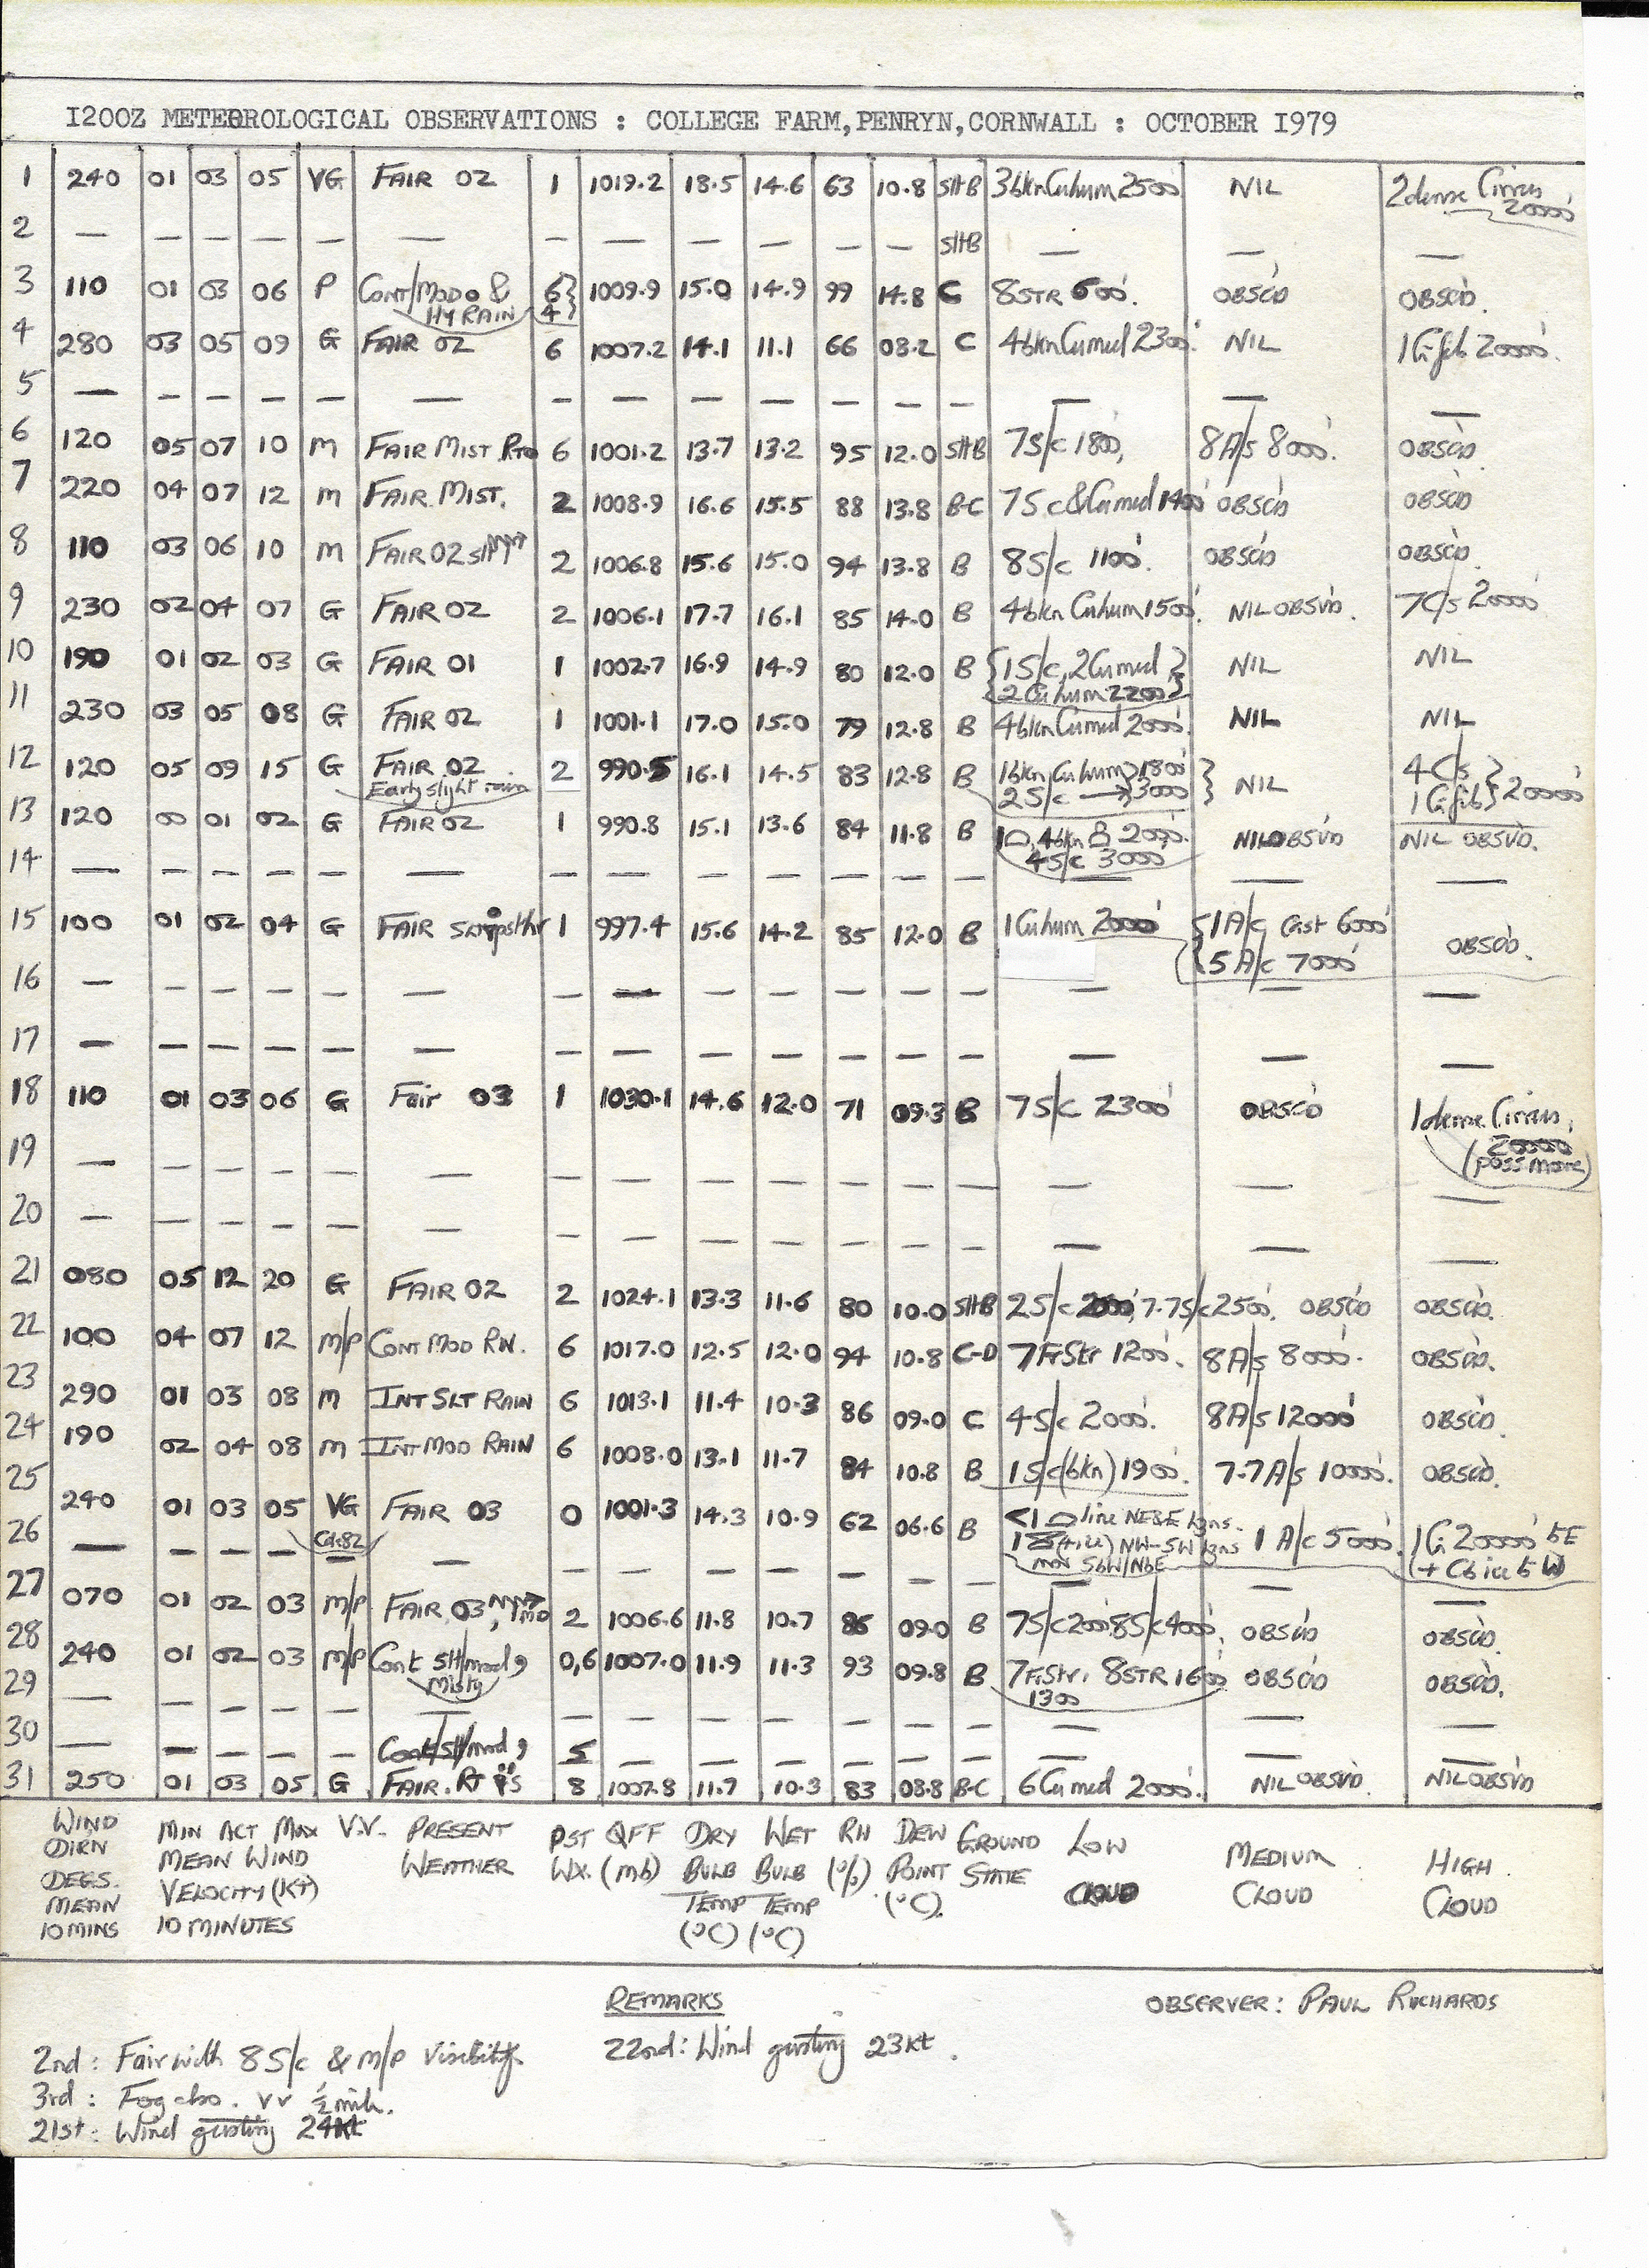 1200Z METEOROLOGICAL OBSERVATIONS : COLLEGE FARM,PENRYN,CORNWALL : OCTOBER 1979
1 240 01 03 05 VG FAIR 02 1 1019.2 18.5 14.6 63 10.8 SHB 3bkn Cuhum 2500' NIL 2dense Cirrus 20000'
2 — — — — — — — — — — — — SHB — — —
3 110 01 03 06 P CONT/MOD & HY RAIN 6 4 1009.9 15.0 14.9 99 14.8 C 8STR 600'. OBSCD OBSCD.
4 280 03 05 09 G FAIR 02 6 1007.2 14.1 11.1 66 08.2 C 4bkn Cumed 2300'. NIL 1Cifib 20000'.
5 — — — — — — — — — — — — — — — —
6 120 05 07 10 M FAIR MIST 6 1001.2 13.7 13.2 95 12.0 SHB 7S/c 1800', 8A/s 8000'. OBSCD
7 220 04 07 12 M FAIR MIST. 2 1008.9 16.6 15.5 88 13.8 B-C 7Sc&Cumed 1400' OBSCD OBSCD
8 110 03 06 10 M FAIR 02 2 1006.8 15.6 15.0 94 13.8 B 8S/c 1100'. OBSCD OBSCD.
9 230 02 04 07 G FAIR 02 2 1006.1 17.7 16.1 85 14.0 B 4bkn Cuhum 1500'. NIL OBSVD. 7C/s 20000'
10 190 01 02 03 G FAIR 01 1 1002.7 16.9 14.9 80 12.0 B {1S/c, 2Cumed 2Cuhum 2200'} NIL NIL
11 230 03 05 08 G FAIR 02 1 1001.1 17.0 15.0 79 12.8 B 4bkn Cumed 2000'. NIL NIL
12 120 05 09 15 G FAIR 02 Early slight rain 2 990.5 16.1 14.5 83 12.8 B 1bkn Cuhum 1800' 2S/c → 3000' } NIL 4C/s 1Cifib } 20000'
13 120 00 01 02 G FAIR 02 1 990.8 15.1 13.6 84 11.8 B 4bkn 2000'. 4S/c 3000' NIL OBSVD NIL OBSVD.
14 — — — — — — — — — — — — — — — —
15 100 01 02 04 G FAIR 1 997.4 15.6 14.2 85 12.0 B 1Cuhum 2000' {1A/c Cast 6000' 5A/c 7000' OBSCD.
16 — — — — — — — — — — — — — — — —
17 — — — — — — — — — — — — — — — —
18 110 01 03 06 G Fair 03 1 1030.1 14.6 12.0 71 09.3 B 7S/c 2300' OBSCD 1dense Cirrus, 20000' (poss more)
19 — — — — — — — — — — — — — — — —
20 — — — — — — — — — — — — — — — —
21 080 05 12 20 G FAIR 02 2 1024.1 13.3 11.6 80 10.0 SHB 2S/c 2000', 7.7S/c 2500'. OBSCD OBSCD.
22 100 04 07 12 M/P CONT MOD RN. 6 1017.0 12.5 12.0 94 10.8 C-D 7FrStr 1200'. 8A/s 8000'. OBSCD.
23 290 01 03 08 M INT SLT RAIN 6 1013.1 11.4 10.3 86 09.0 C 4S/c 2000'. 8A/s 12000' OBSCD.
24 190 02 04 08 M INT MOD RAIN 6 1008.0 13.1 11.7 84 10.8 B 1S/c(bkn) 1900'. 7.7A/s 10000'. OBSCD.
25 240 01 03 05 VG Cat82 FAIR 03 0 1001.3 14.3 10.9 62 06.6 B <1 line NE&E hzns. 1 (+ice) NW-SW hzns mov SbW/NbE 1 A/c 5000'. 1Ci 20000' to E (+ Cb ice to W)
26 — — — — — — — — — — — — — — — —
27 070 01 02 03 M/P FAIR 03 2 1006.6 11.8 10.7 86 09.0 B 7S/c 200' 8S/c 400'. OBSCD OBSCD.
28 240 01 02 03 M/P Cont Slt/mod , Misty 0,6 1007.0 11.9 11.3 93 09.8 B 7FrStr. 1300 8STR 1600' OBSCD OBSCD.
29 — — — — — — — — — — — — — — — —
30 — — — — — Cont/Slt/mod , 5 — — — — — — — — —
31 250 01 03 05 G FAIR. 8 1007.8 11.7 10.3 83 08.8 B-C 6Cumed 2000'. NIL OBSVD NIL OBSVD
WIND DIRN DEGS. MEAN 10 MINS
MIN ACT MAX MEAN WIND VELOCITY (Kt) 10 MINUTES
V.V. PRESENT WEATHER PST WX. QFF (mb) DRY BULB TEMP (°C) WET BULB TEMP (°C) RH (%) DEW POINT (°C). GROUND STATE LOW CLOUD MEDIUM CLOUD HIGH CLOUD
REMARKS OBSERVER: PAUL RICHARDS
2nd: Fair with 8 S/c & M/P Visibility. 22nd: Wind gusting 23Kt.
3rd: Fog also. VV ½ mile.
21st: Wind gusting 24Kt